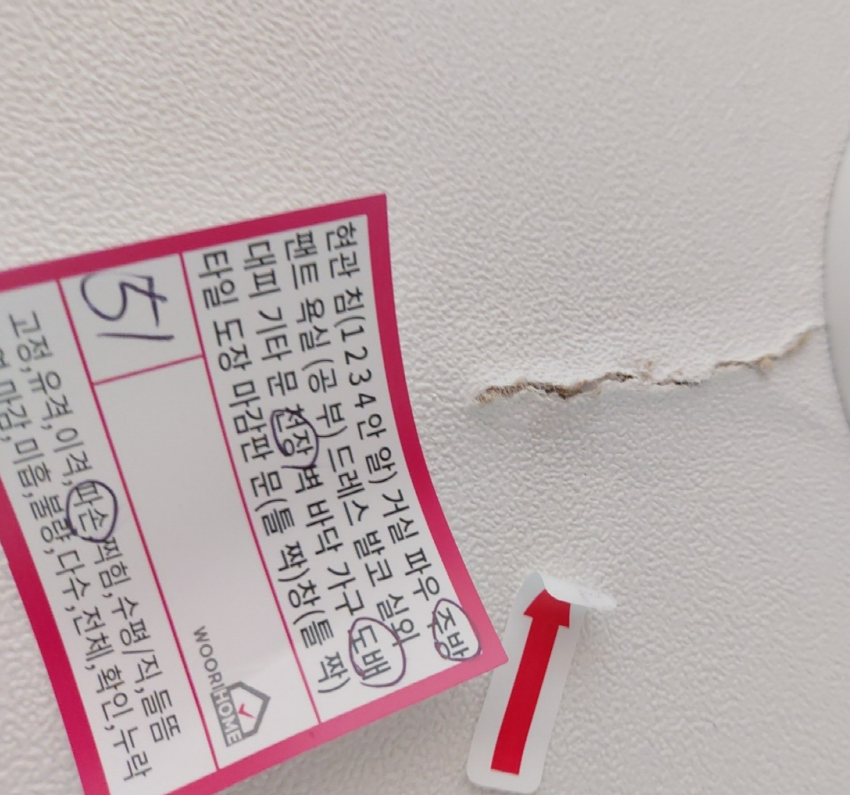 현관 침(1 2 3 4 안 알) 거실 파우 주방
팬트 욕실 (공 부) 드레스 발코 실외
대피 기타 문 천장 벽 바닥 가구 도배
타일 도장 마감판 문(틀 짝)창(틀 짝)
51
WOORIHOME
고정,유격,이격,파손,찍힘,수평/직,들뜸
마감,미흡,불량,다수,전체,확인,누락